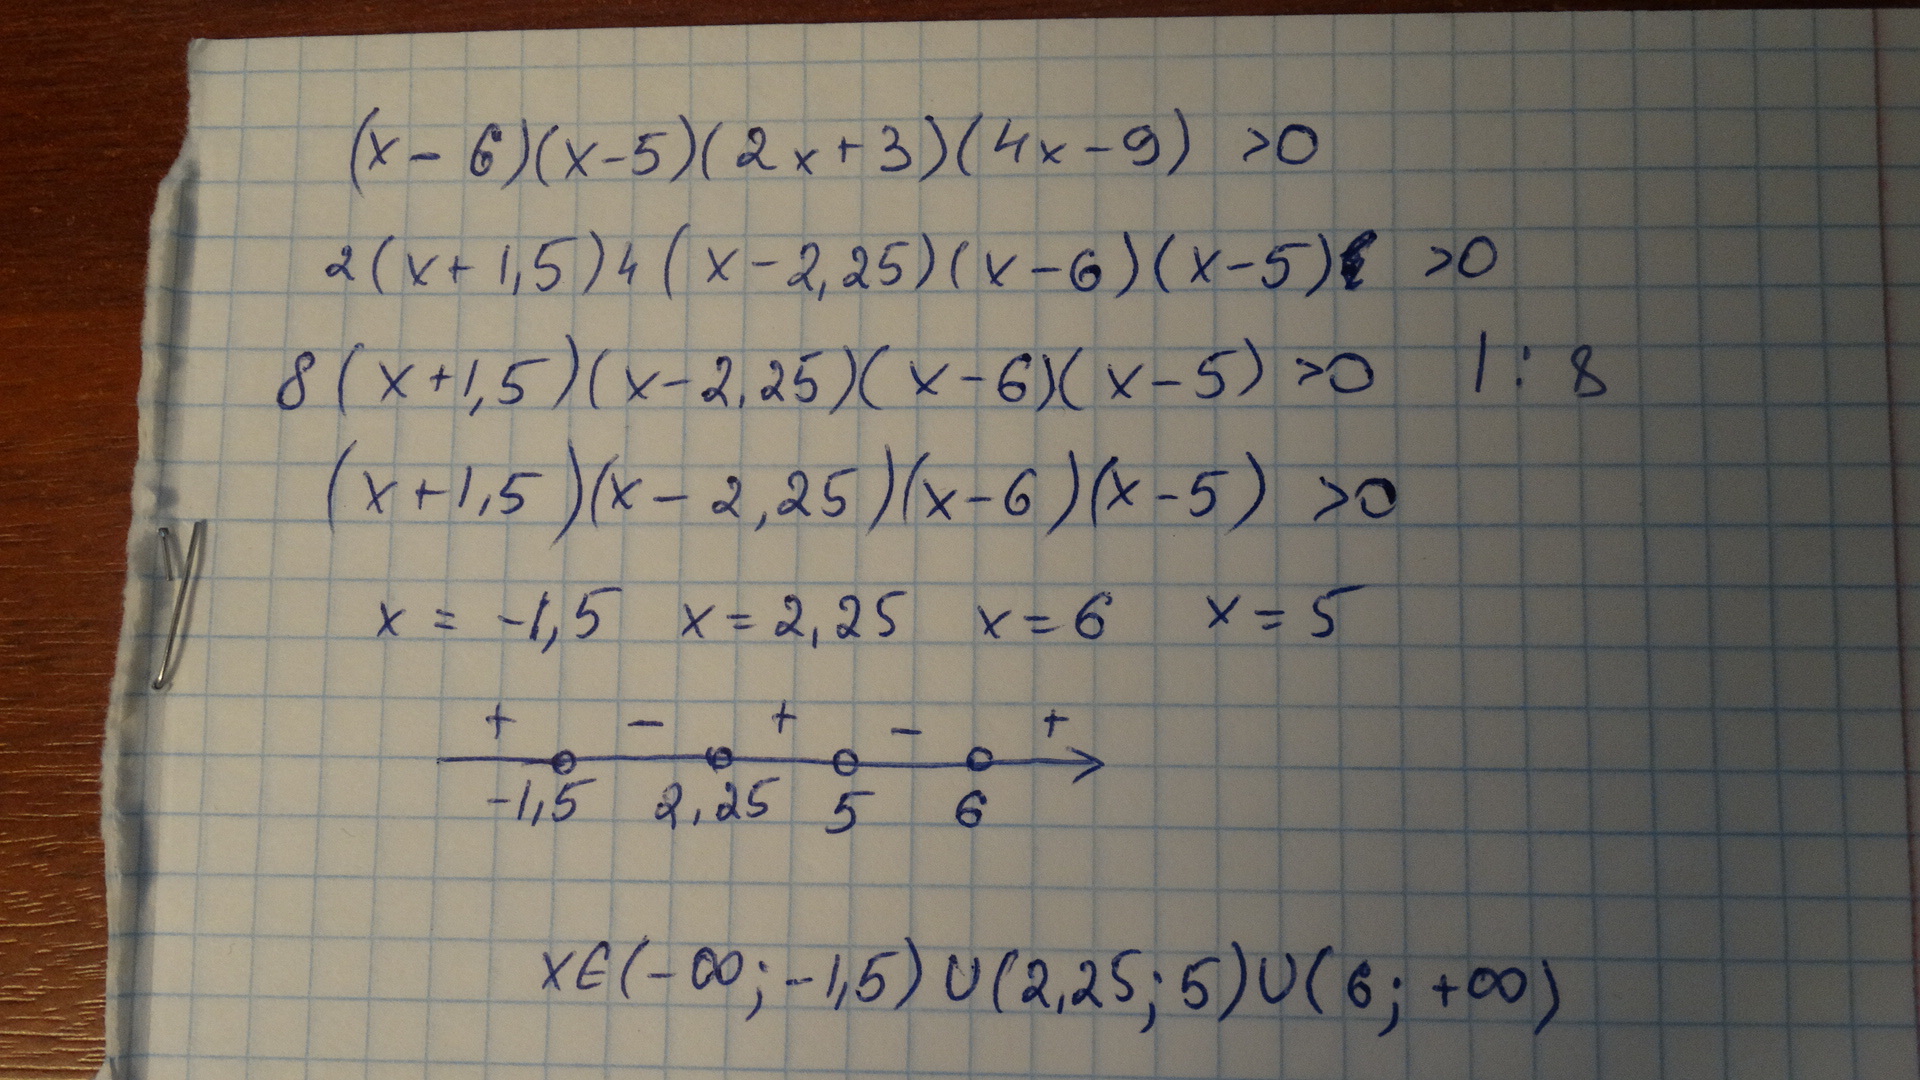 (x-6)(x-5)(2x+3)(4x-9) >0
2(x+1,5)4(x-2,25)(x-6)(x-5) >0
8(x+1,5)(x-2,25)(x-6)(x-5) >0 |:8
(x+1,5)(x-2,25)(x-6)(x-5) >0
x = -1,5 x = 2,25 x = 6 x = 5
+ - + - +
-1,5 2,25 5 6
x∈(-∞;-1,5)∪(2,25;5)∪(6;+∞)